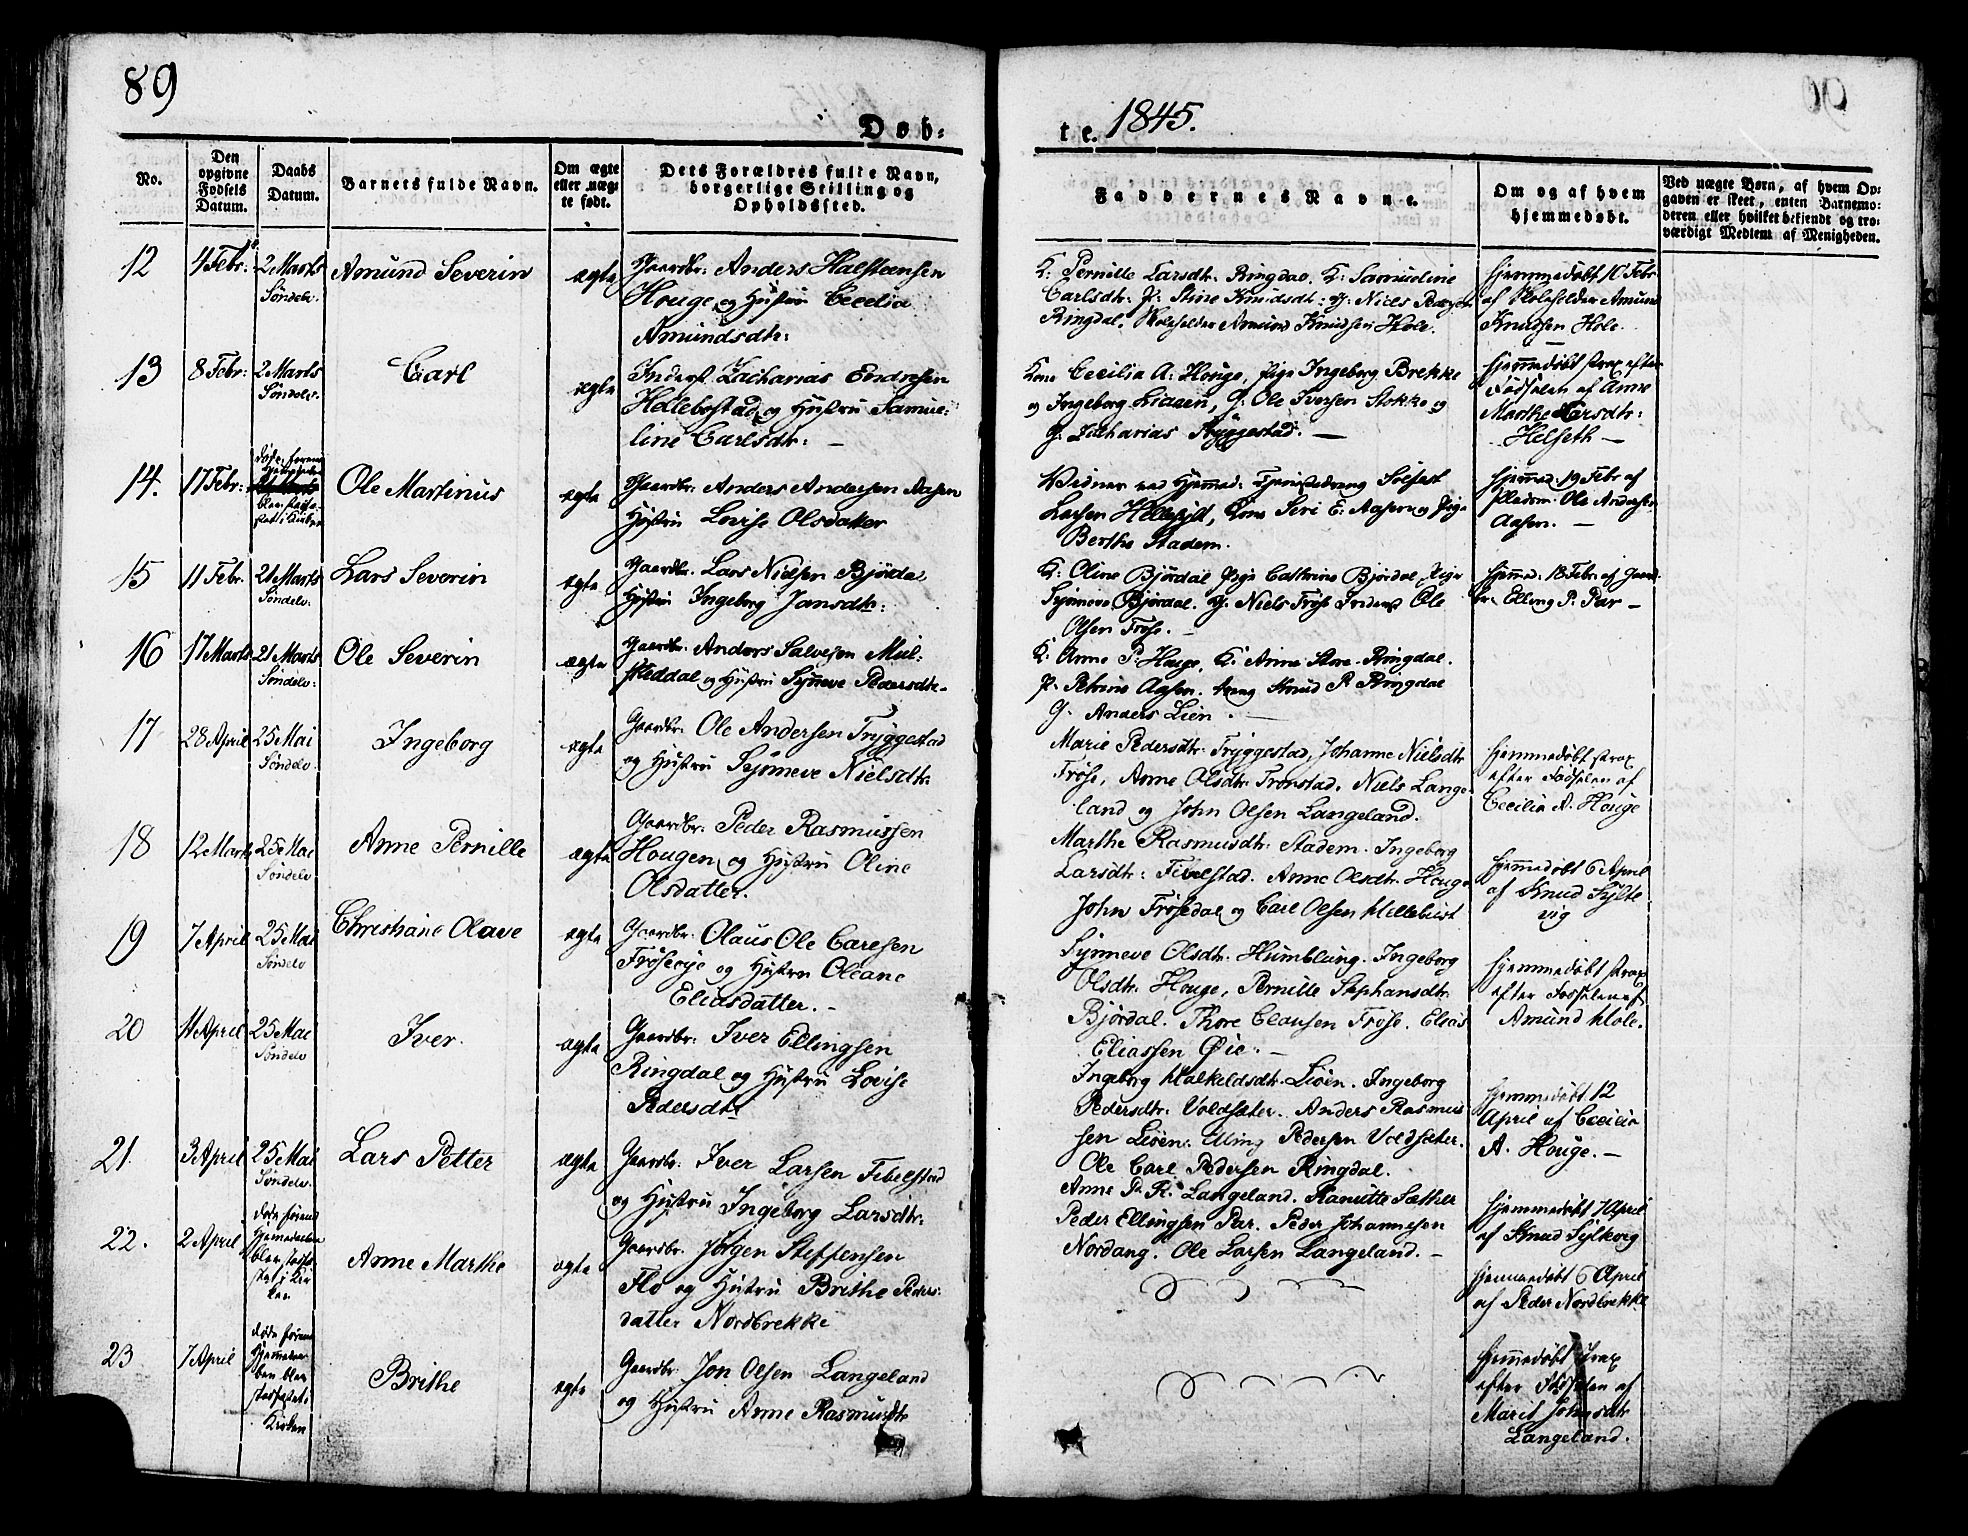 89
90
Døb=
te. 1845.
No.
Den opgivne Fødsels Datum.
Daabs Datum.
Barnets fulde Navn.
Om ægte eller uægte født.
Dets Forældres fulde Navn, borgerlige Stilling og Opholdssted.
Faddernes Navne.
Om og af hvem hjemmedøbt.
Ved uægte Børn, af hvem Op=
gaven er skeet, enten Barnemo=
deren eller hvilket bekjendt og tro=
værdigt Medlem af Menigheden.
12 4 Febr: 2 Marts Amund Severin ægte Gaardbr: Anders Halsteensen
Søndelv. Houge og Hustru Cecelia
Amundsdtr:
K: Pernille Larsdtr. Ringdal. K: Samueline
Carlsdtr: P: Stine Knudsdt: G: Niels
Ringdal, Skoleholder Amund Knudsen Hole.
Hjemmedøbt 10 Febr.
af Skoleholder Amund
Knudsen Hole.
13 8 Febr: 2 Marts Carl ægte Inderst Zacharias Endresen
Søndelv. Hellebostad og Hustru Samue=
line Carlsdtr: —
Kone Cecilia A: Houge, Pige Ingeborg Brekke
og Ingeborg Liaaen, G: Ole Iversen Stokke og
G: Zacharias Tryggestad. —
Hjemmedøbt strax efter
Fødselen af Anne
Marthe Larsdtr:
Helseth —
14. 17 Febr: døde, forend
blev stadfæ-
stet i Kirken
Ole Martinus ægte Gaardbr: Anders Andersen Aasen
Hustru Lovise Olsdatter
Vidner ved Hjemmed: Tjenestedreng Solfest
Larsen Hellesylt, Kone Seri E. Aasen og Pige
Berthe Stadem.
Hjemmed: 19 Febr af
Ole Andersen
Aasen. —
15 11 Febr. 21 Marts Lars Severin ægte Gaardbr. Lars Nielsen Bjørdal
Søndelv: Hustru Ingeborg Jansdtr:
K: Oline Bjørdal Pige Cathrine Bjørdal Pige
Synneve Bjørdal. G: Niels Frøse Ole
Olsen Frøse. —
Hjemmed: 18 Febr. af Gaard-
br. Elling P. Par —
16 17 Marts 21 Marts Ole Severin ægte Gaardbr: Anders Salvesen Mul=
Søndelv: skeddal og Hustru Synneve Pedersdtr.
K: Anne P: Houge, K: Anne Store-Ringdal.
P: Petrine Aasen. Dreng Knud P. Ringdal
G: Anders Lien. —
17 28 April 25 Mai Ingeborg ægte Gaardbr: Ole Andersen Tryggestad
Søndelv. og Hustru Synneve Nielsdtr.
Marie Pedersdtr: Tryggestad, Johanne Nielsdtr
Frøse, Anne Olsdtr. Tronstad, Niels Lange
land og John Olsen Langeland.
Hjemmedøbt strax
efter Fødselen af
Cecilia A. Houge
18 12 Marts 25 Mai Anne Pernille ægte Gaardbr: Peder Rasmussen
Søndelv Hougen og Hustru Oline
Olsdatter.
Marthe Rasmusdtr: Stadem. Ingeborg
Larsdtr: Fivelstad. Anne Olsdtr: Houge
John Frøsedal og Carl Olsen Hellebust
Hjemmedøbt 6 April
af Knud Sylte
vig
19 7 April 25 Mai Christiane Olave ægte Gaardbr. Olaus Ole Carlsen
Søndelv Frøseøje og Hustru Oleane
Eliasdatter. —
Synneve Olsdtr. Humblung. Ingeborg
Olsdtr. Houge, Pernille Stephansdtr
Bjørdal. Thore Clausen Frøse. Elias
Eliassen Øie. —
Hjemmedøbt strax
efter Fødselen af
Amund Hole.
20 11 April 25 Mai Iver. ægte Gaardbr: Iver Ellingsen
Søndelv Ringdal og Hustru Lovise
Pedersdtr
Ingeborg Halkildsdtr. Liøen. Ingeborg
Pedersdtr: Voldsæter. Anders Rasmus
sen Liøen. Elling Pedersen Voldsæter.
Ole Carl Pedersen Ringdal.
Hjemmedøbt 12
April af Cecilia
A. Houge. —
21. 3 April 25 Mai Lars Petter ægte Gaardbr: Iver Larsen Fibelstad
Søndelv. og Hustru Ingeborg Larsdtr:
Anne P. R. Langeland. Sæther
Peder Ellingsen Par. Peder Johannesen
Nordang. Ole Larsen Langeland. —
Hjemmedøbt 7 April
af Knud Syltevig
22. 2 April døde førend
Hjemmedaaben
blev stadfæ-
stet i Kir
ken
Anne Marthe ægte Gaardbr. Jørgen Steffensen
Flo og Hustru Brithe Peders=
datter Nordbrekke
Hjemmedøbt 6 April
af Peder Nordbrekke
23 7 April døde førend
Hjemmedaa
ben blev
stadfæstet i
Kirken
Brithe ægte Gaardbr. Jon Olsen Langeland
og Hustru Anne Rasmusdtr
Hjemmedøbt strax
efter Fødselen af
Marit Johnsdtr
Langeland.